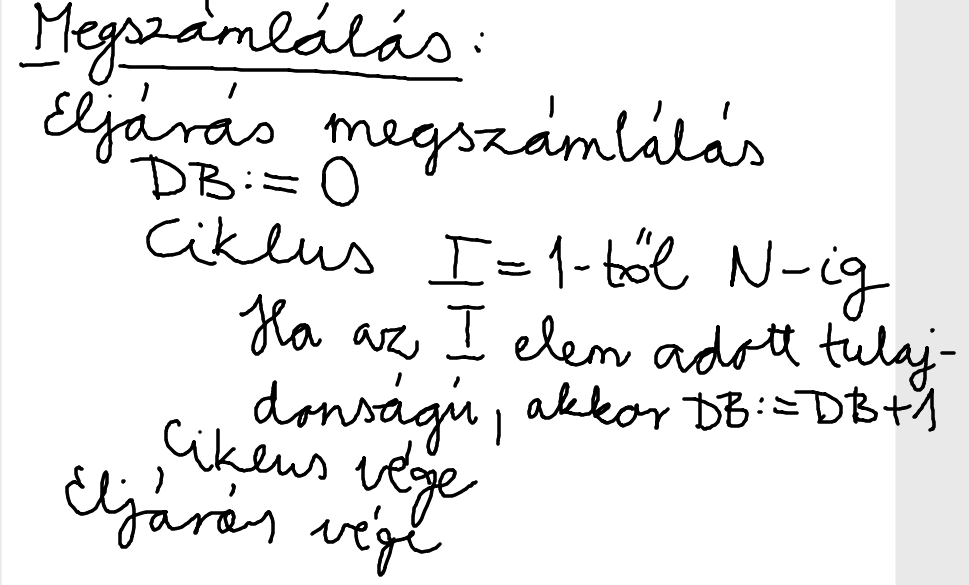 Megszámlálás:
Eljárás megszámlálás
DB:= 0
Ciklus I=1-től N-ig
Ha az I elem adott tulaj-
donságú, akkor DB:=DB+1
Ciklus vége
Eljárás vége